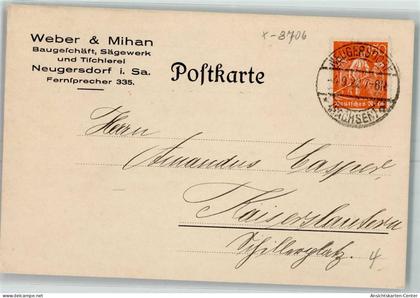 Weber & Mihan
Baugeschäft, Sägewerk
und Tischlerei
Neugersdorf i. Sa.
Fernsprecher 335.
x-8706
Postkarte
NEUGERSDORF
Deutsches Reich
(SACHSEN)
Herrn
Amandus Casper
Kaiserslautern
Schillerplatz. 4
Ansichtskarten-Center